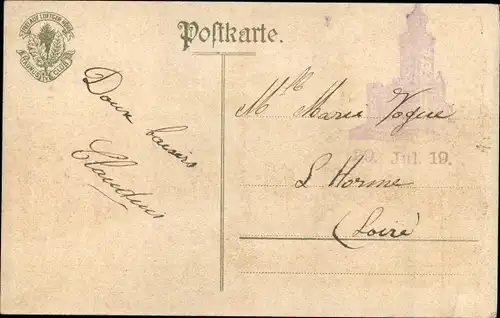 Postkarte.
Doux baisers
Claudius
Mlle Marie Vogue
L Horme
(Loire)
20. Jul. 19.